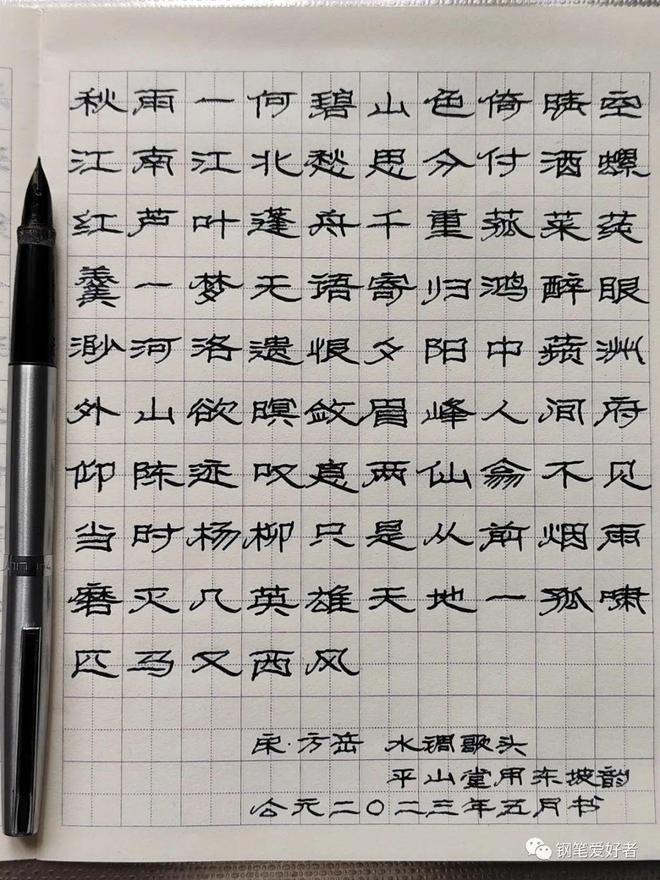 秋雨一何碧山色倚晴空
江南江北愁思分付酒螺
红芦叶蓬舟千重菰菜莼
羹一梦无语寄归鸿醉眼
渺河洛遗恨夕阳中蘋洲
外山欲暝敛眉峰人间府
仰陈迹叹息两仙翁不见
当时杨柳只是从前烟雨
磨灭几英雄天地一孤啸
匹马又西风
宋·方岳 水调歌头
平山堂用东坡韵
公元二〇二三年五月书
钢笔爱好者